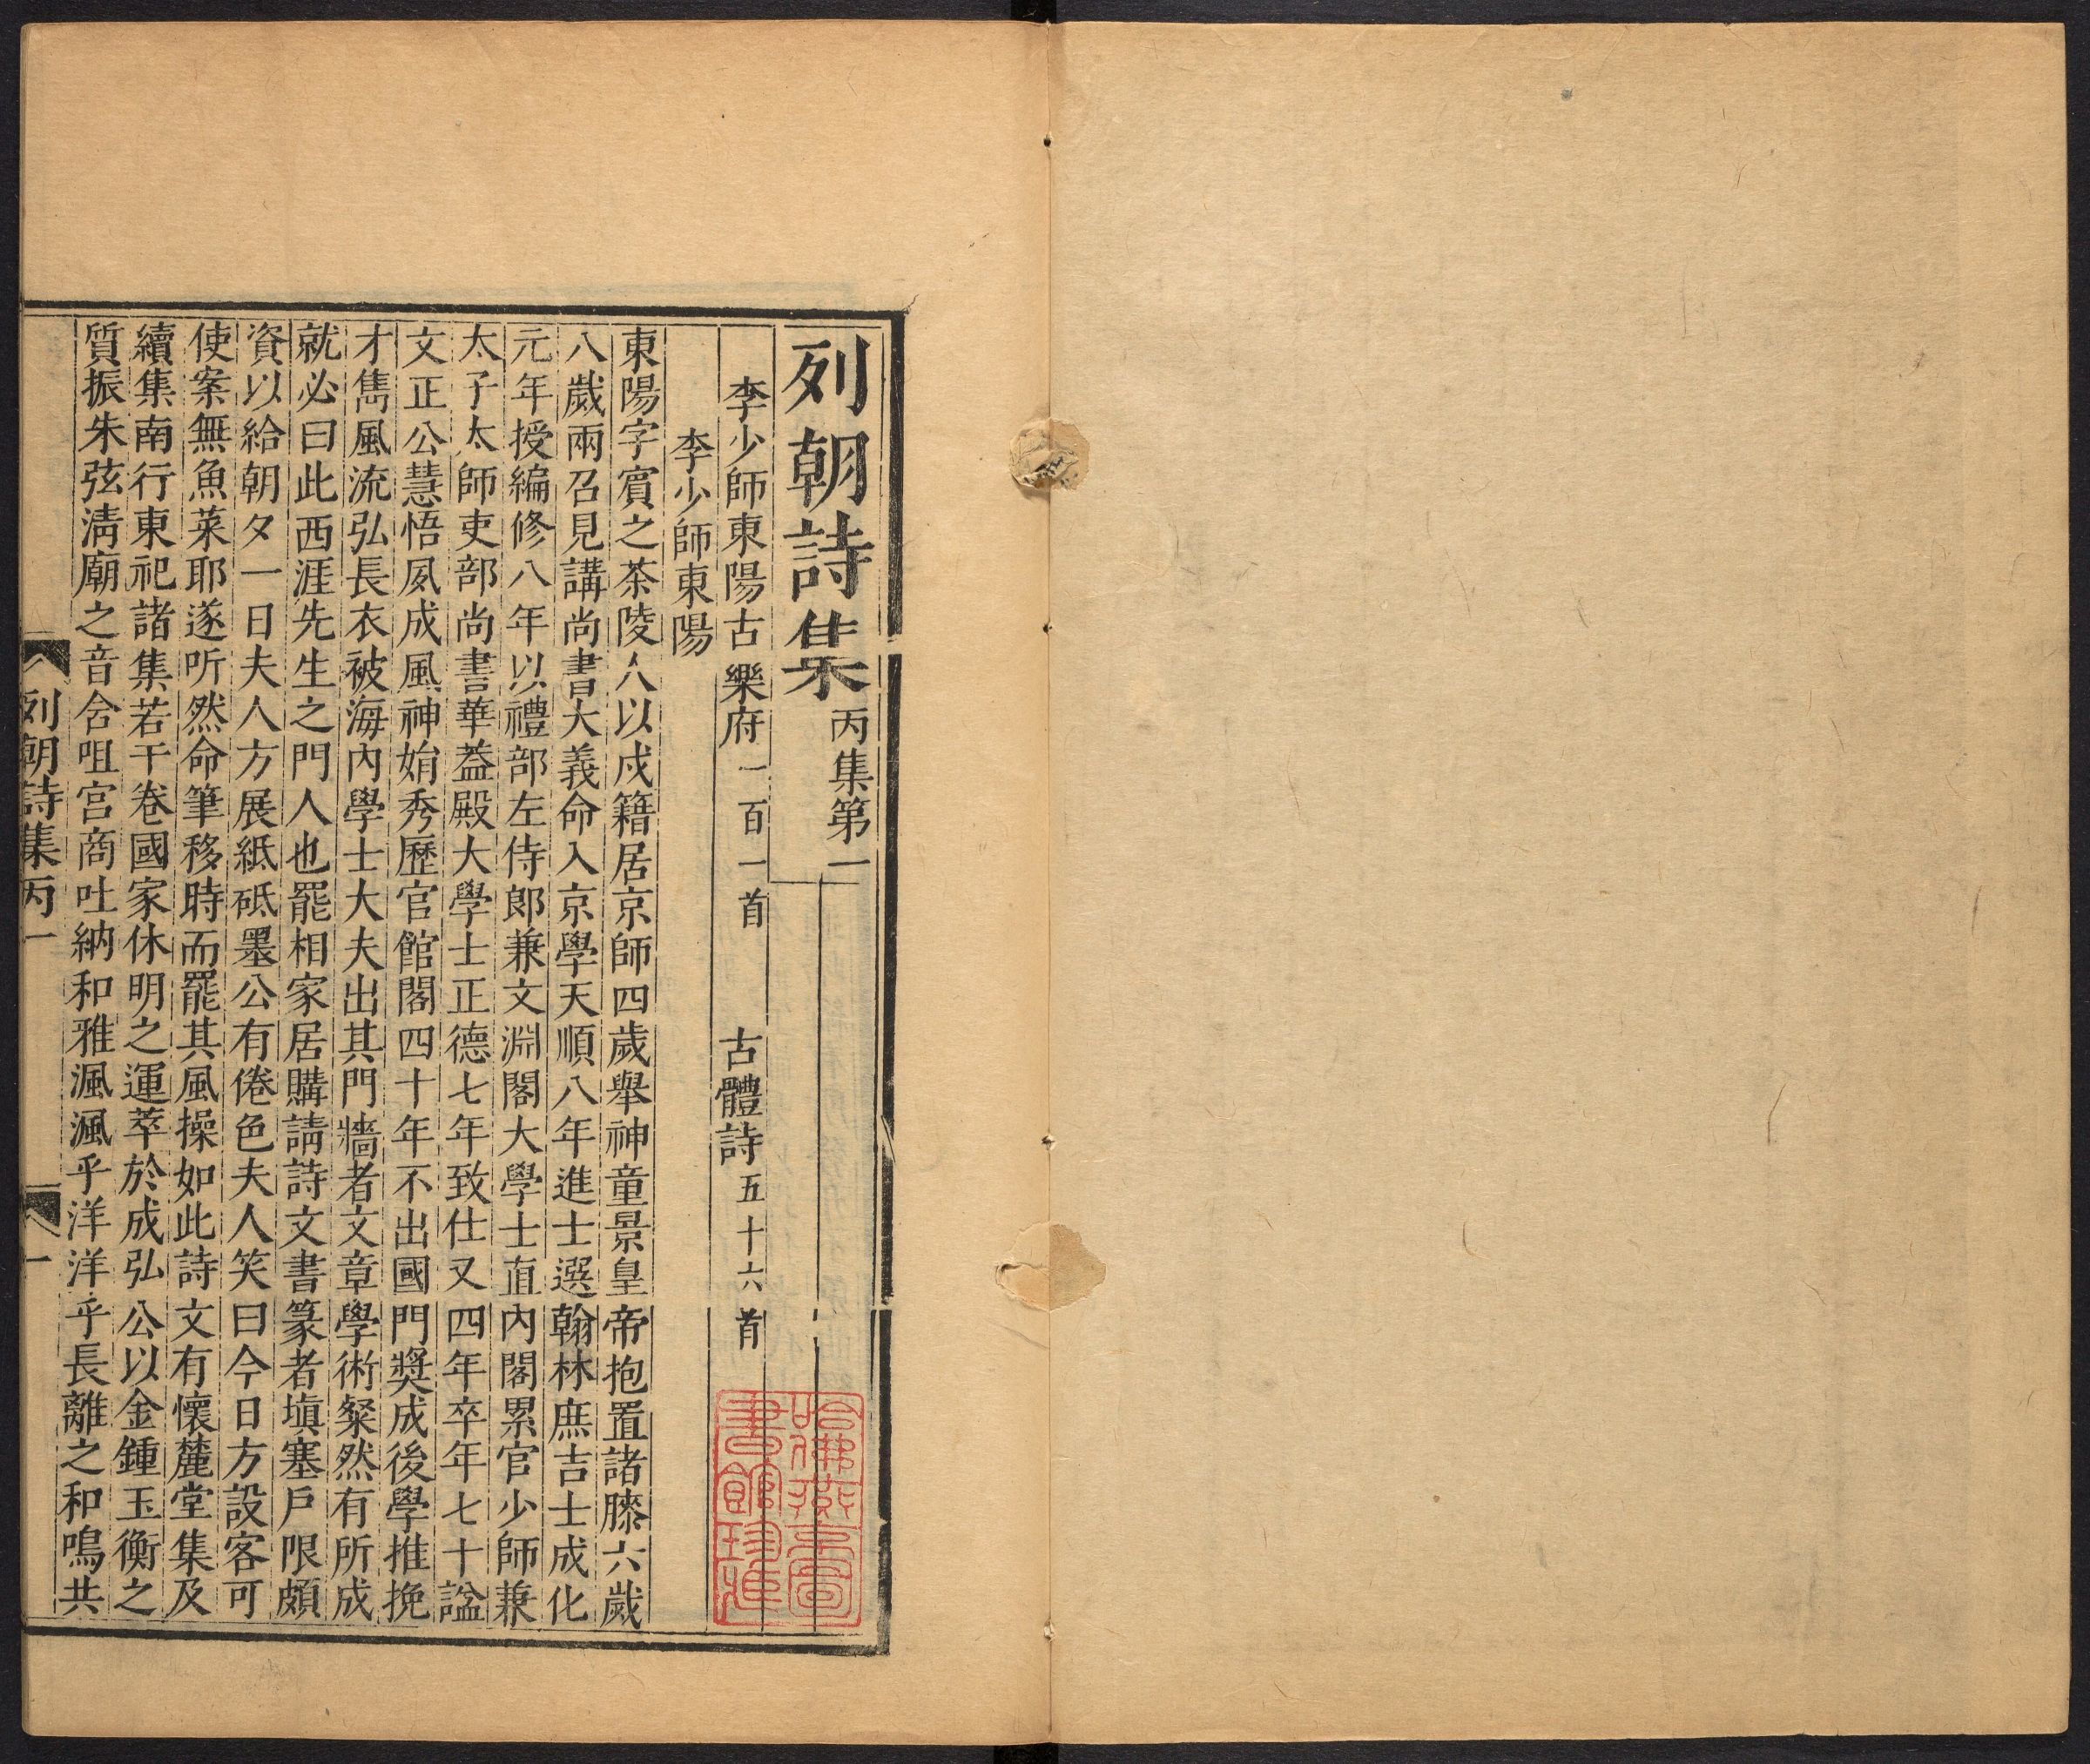 列朝詩集 丙集第一
李少師東陽古樂府一百一首 古體詩五十六首
李少師東陽
東陽字賓之茶陵人以戍籍居京師四歲舉神童景皇帝抱置諸膝六歲
八歲兩召見講尚書大義命入京學天順八年進士選翰林庶吉士成化
元年授編修八年以禮部左侍郎兼文淵閣大學士直內閣累官少師兼
太子太師吏部尚書華葢殿大學士正德七年致仕又四年卒年七十謚
文正公慧悟夙成風神娟秀歷官館閣四十年不出國門獎成後學推挽
才雋風流弘長衣被海內學士大夫出其門牆者文章學術粲然有所成
就必曰此西涯先生之門人也罷相家居購請詩文書篆者塡塞戶限頗
資以給朝夕一日夫人方展紙砥墨公有倦色夫人笑曰今日方設客可
使案無魚菜耶遂听然命筆移時而罷其風操如此詩文有懷麓堂集及
續集南行東祀諸集若干卷國家休明之運萃於成弘公以金鍾玉衡之
質振朱弦淸廟之音含咀宮商吐納和雅渢渢乎洋洋乎長離之和鳴共
列朝詩集丙一
一
哈佛燕京圖
書館珍藏